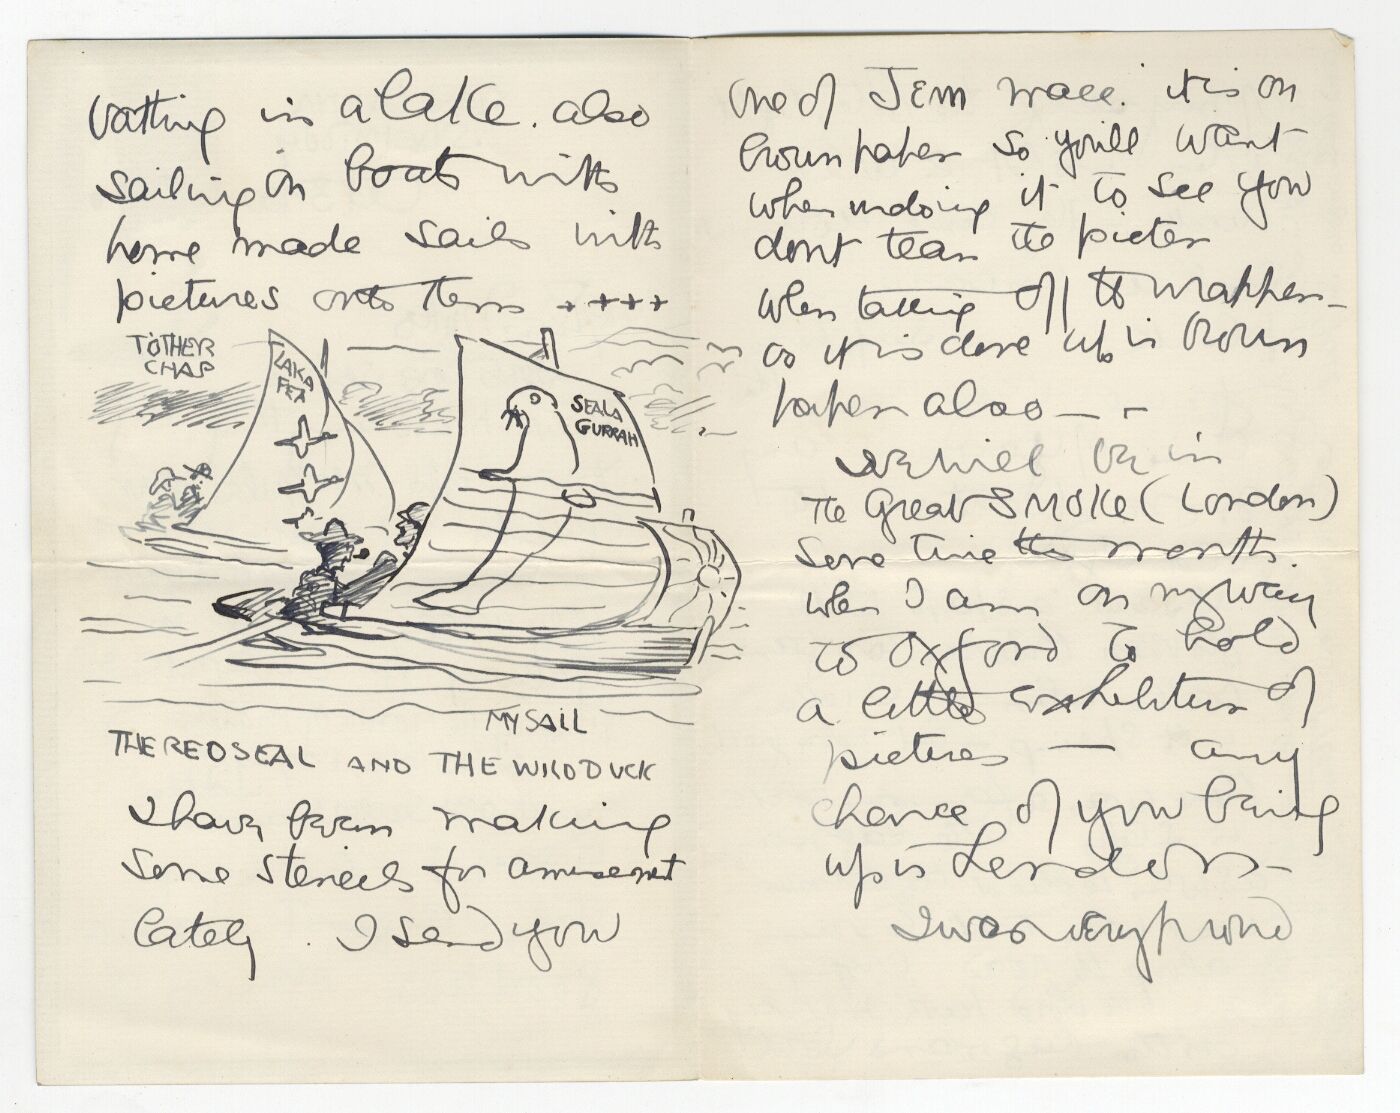 batthing in a lake. also
sailing in boats with
home made sails with
pictures onto them ++++
T'OTHER
CHAP
LAKA
FEA
SEALA
GURRAH
MY SAIL
THE RED SEAL AND THE WILD DUCK
I have been making
some stencils for amusement
lately . I send you
one of Jem Mace. it is on
brown paper so youll want
when undoing it to see you
dont tear the picter
when taking off the wrapper—
as it is done up in brown
paper also — –
we will be in
The Great SMOKE (London)
some time this month.
when I am on my way
to Oxford to hold
a little exhibition of
pictures — any
chance of you being
up in London —
I was very proud